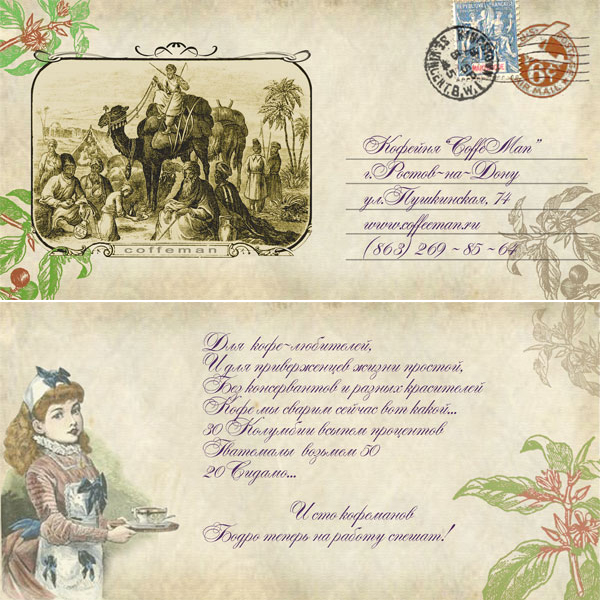 REPUBLIQUE FRANÇAISE
KINGSTOWN
ST. VINCENT. B.W.I.
6¢
AIR MAIL
Кофейня "CoffeMan"
г.Ростов-на-Дону
ул.Пушкинская, 74
www.coffeeman.ru
(863) 269 - 85 - 64
coffeman
Для кофе-любителей,
И для приверженцев жизни простой,
Без консервантов и разных красителей
Кофе мы сварим сейчас вот какой...
30 Колумбии всыпем процентов
Гватемалы возьмем 50
20 Сидамо...
И сто кофеманов
Бодро теперь на работу спешат!